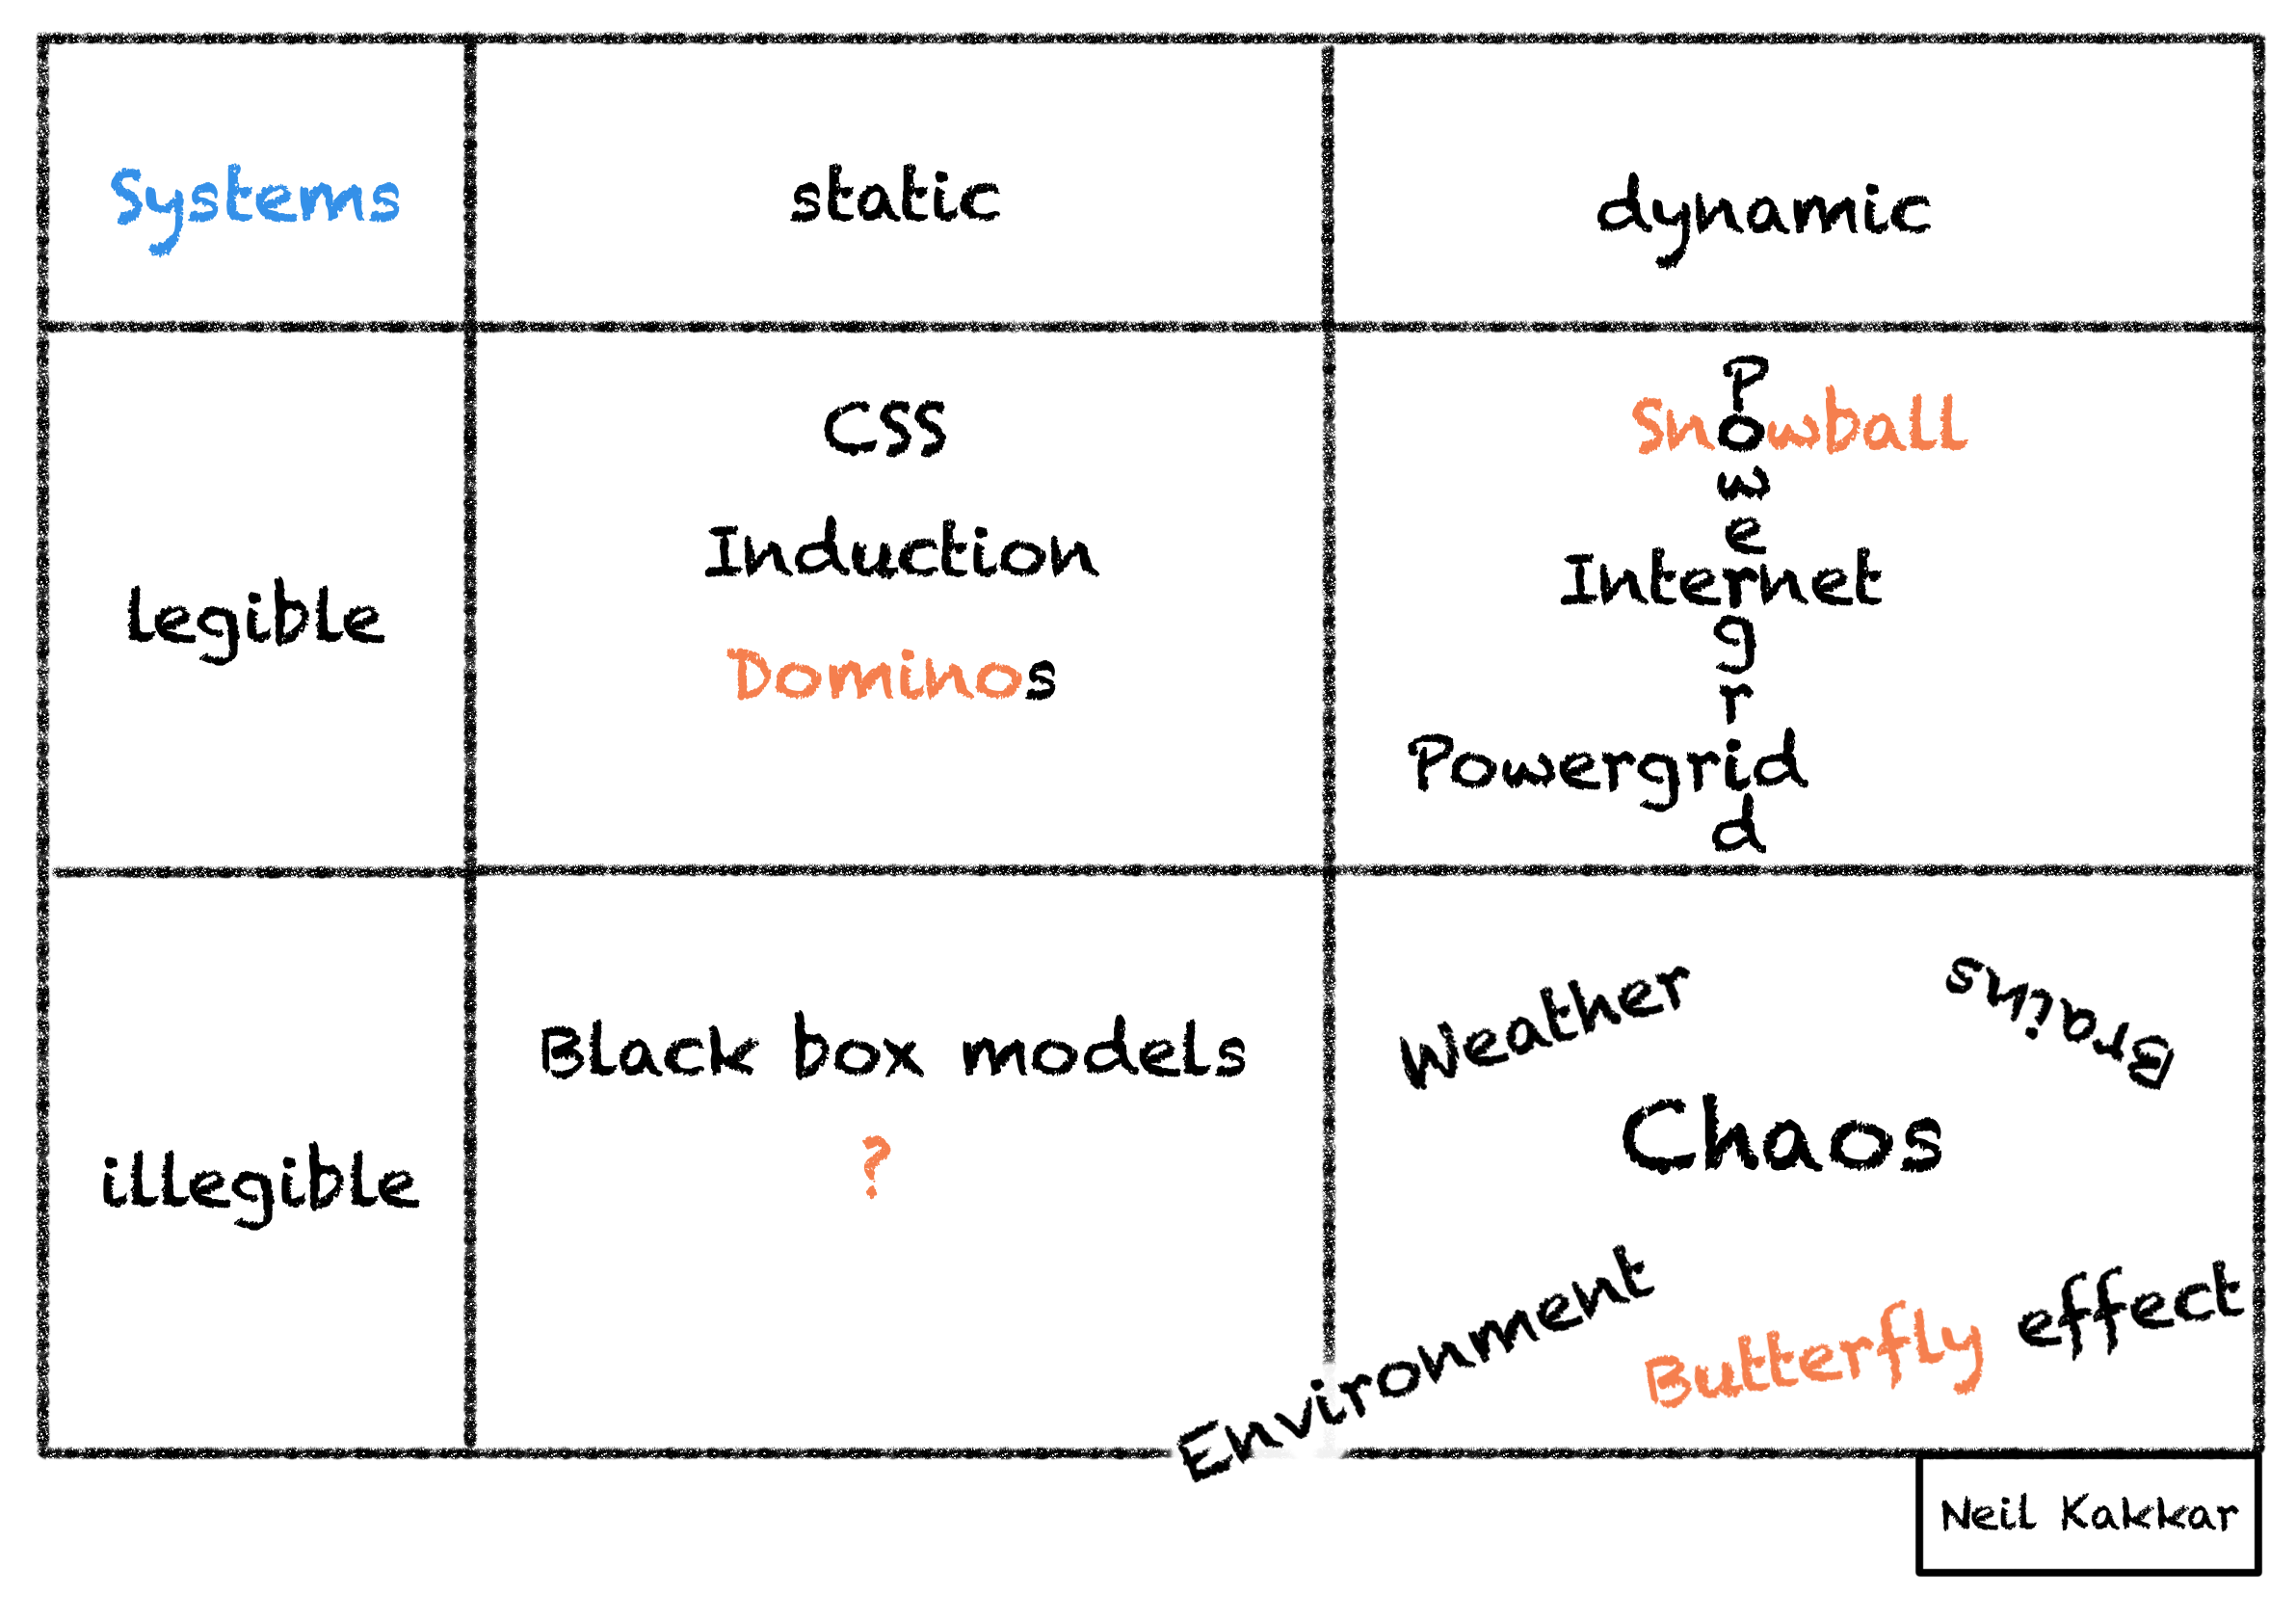 Systems
static
dynamic
legible
CSS
Induction
Dominos
Powergrid
Snowball
Internet
Powergrid
illegible
Black box models
?
Weather
Brains
Chaos
Environment
Butterfly effect
Neil Kakkar